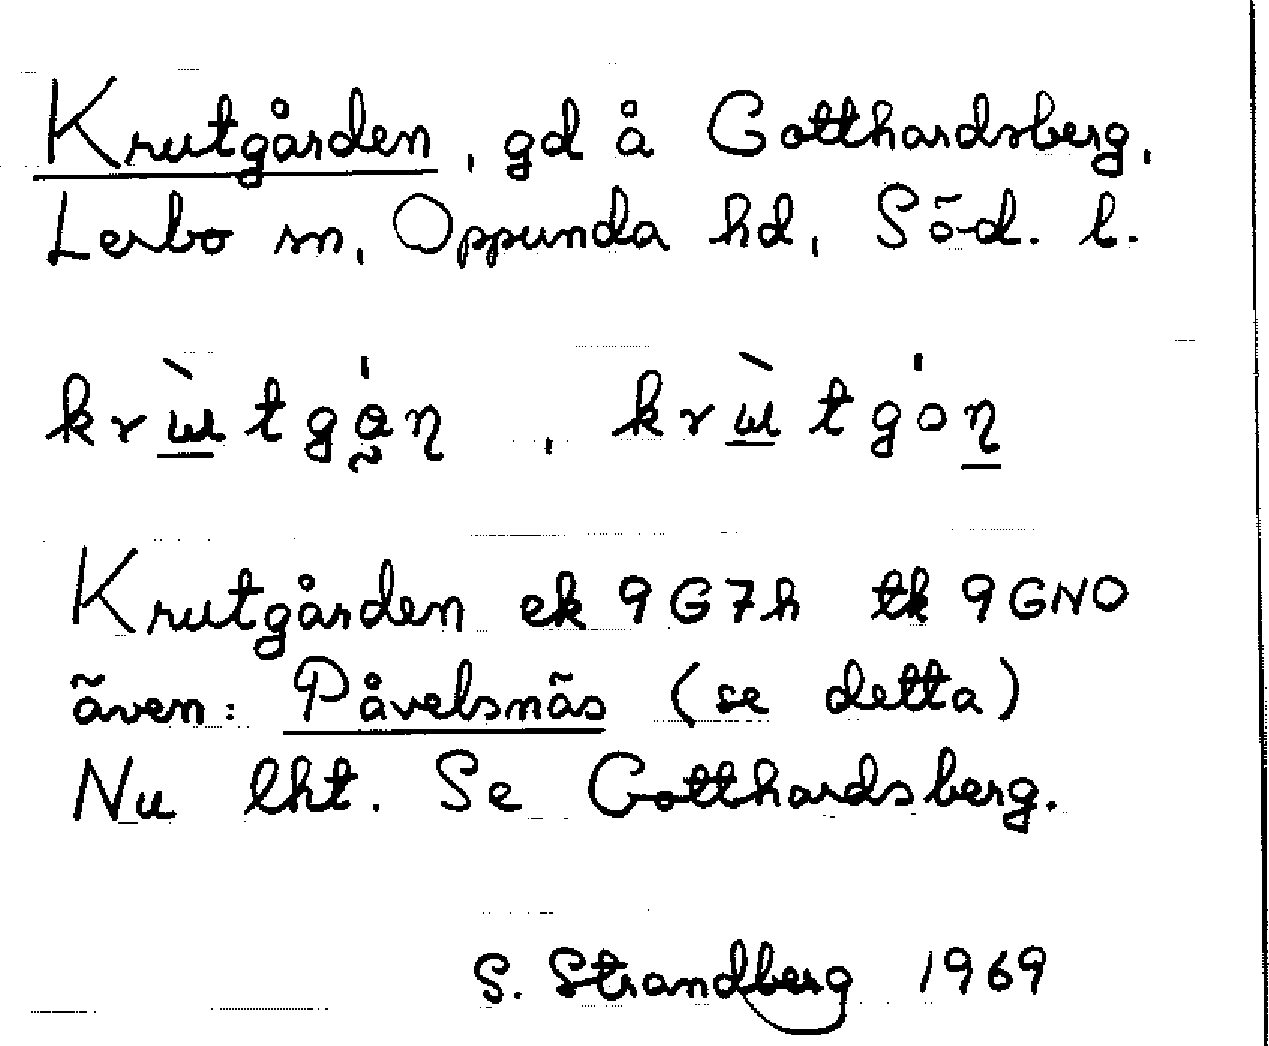 Krutgården, gd å Gotthardsberg,
Lerbo sn, Oppunda hd, Söd. l.
krɯ̀tgǻ̰ɳ, krɯ̀tgóɳ
Krutgården ek 9G7h tk 9GNO
även: Påvelsnäs (se detta)
Nu lht. Se Gotthardsberg.
S. Strandberg 1969